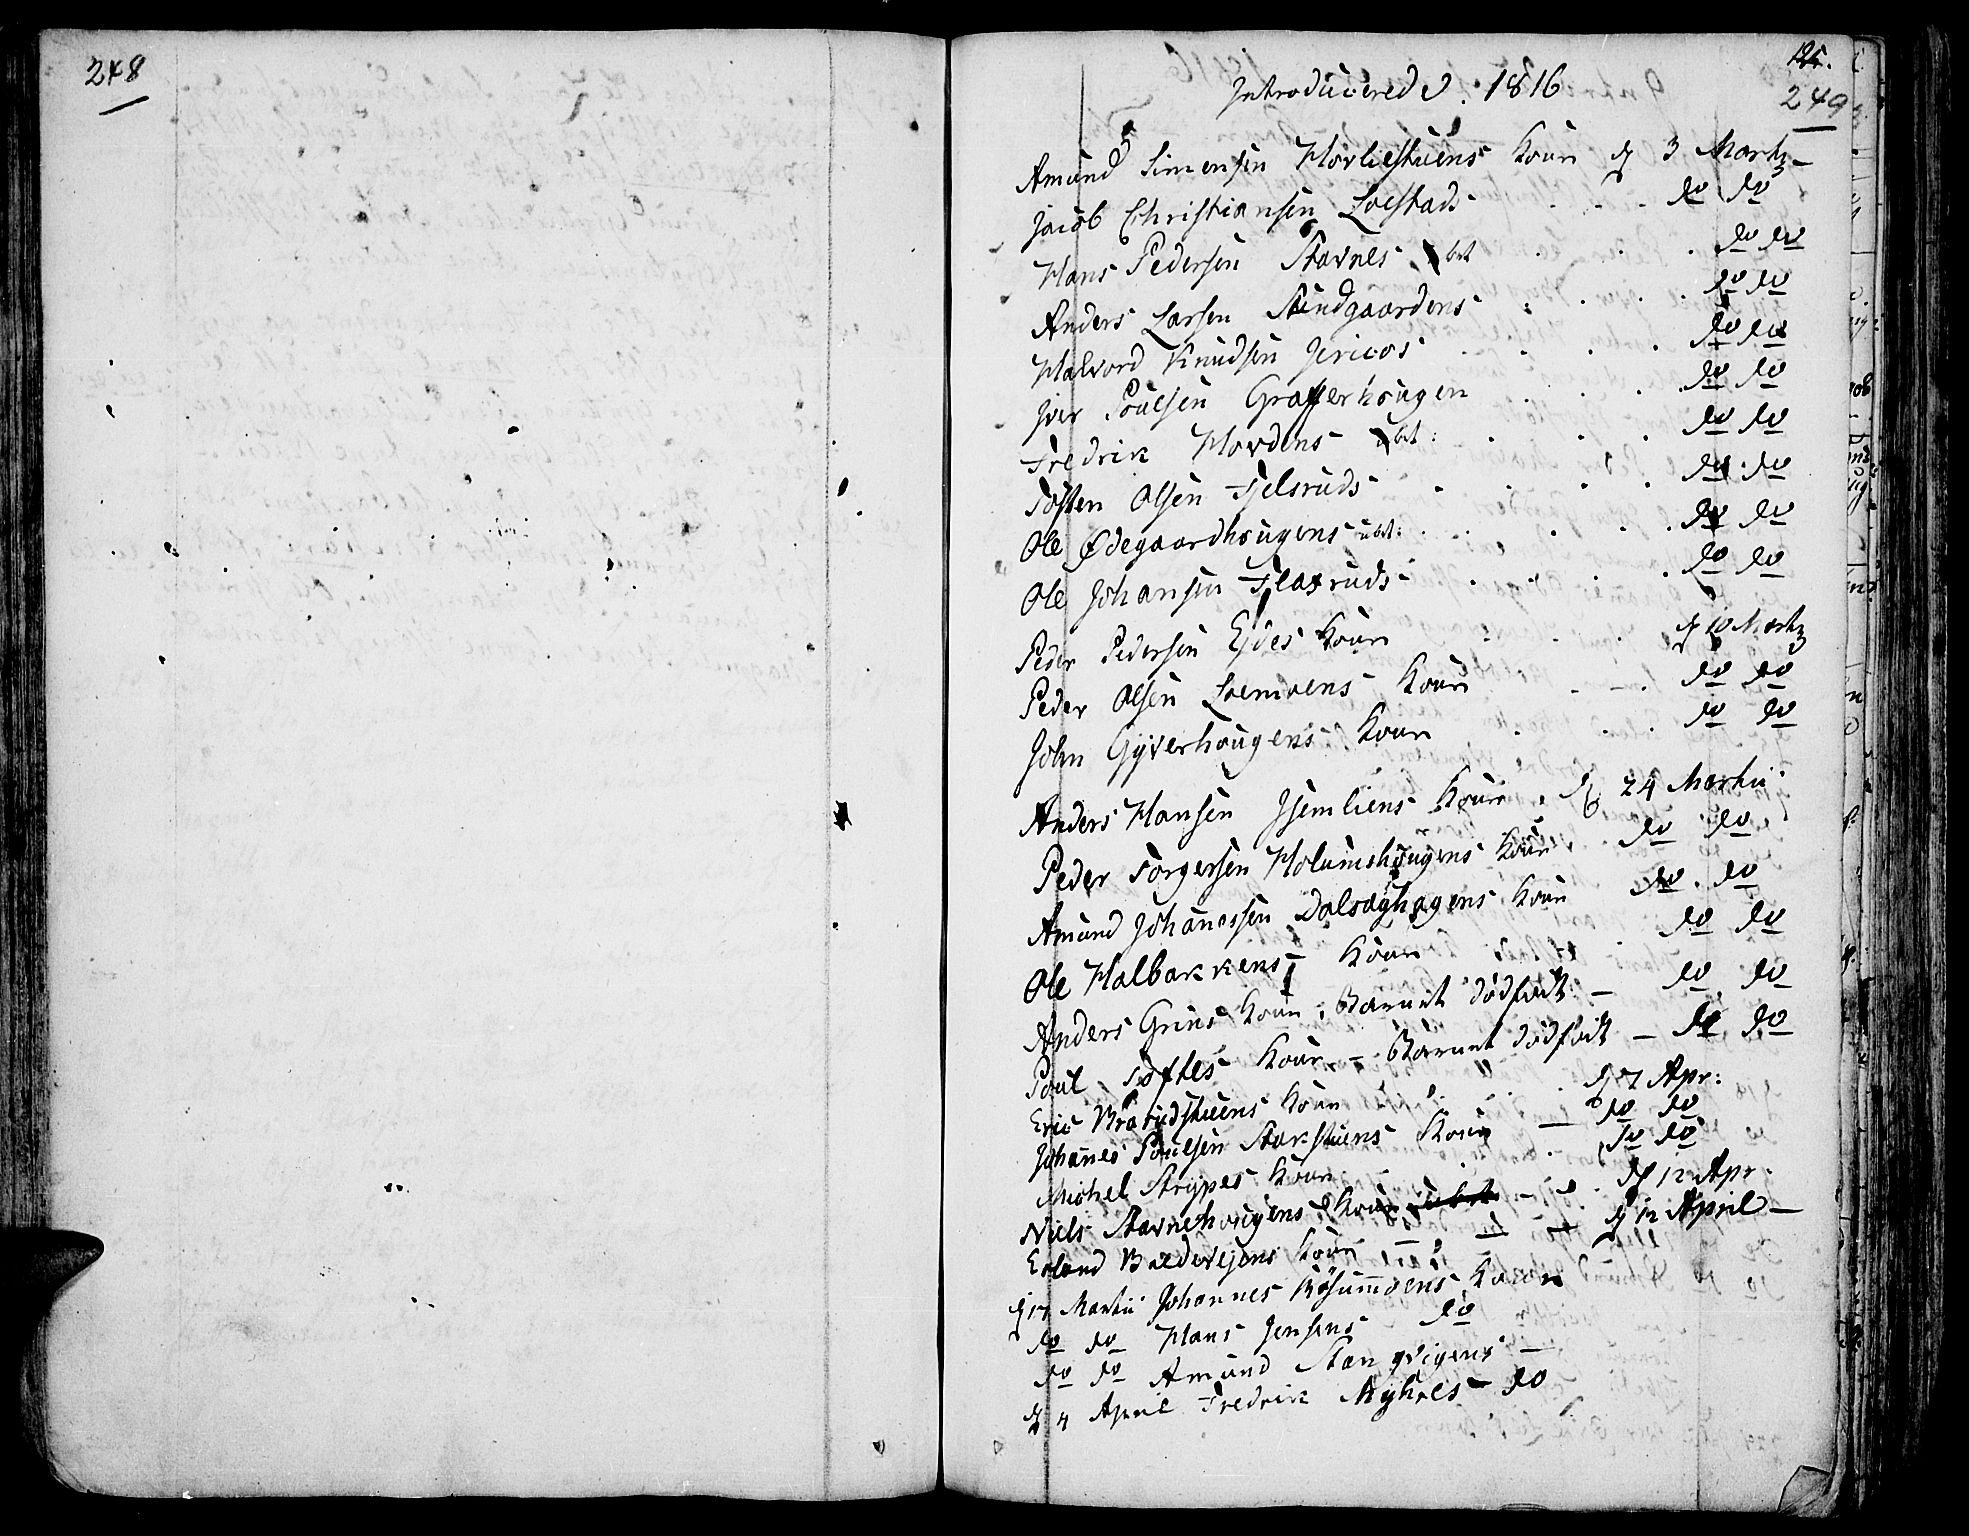 248
125.
249
Introducerede. 1816
Amund Simensen Hovliestuens Kone d 3 Martz
Jacob Christiansen Loestads . . . do do
Hans Pedersen Stavnes ubet . . . do do
Anders Larsen Sundgaardens . . . do do
Halvord Knudsen Jericos . . . do do
Iver Poulsen Grafferhougen . . . do do
Fredrik Hovdens ubet: . . . do do
Tosten Olsen Fjelsruds . . . do do
Ole Ødegaardhougens ubet: . . . do do
Ole Johansen Flaxruds . . . do do
Peder Pedersen Ejdes Kone . . . d 10 Martz
Peder Olsen Loemoens Kone . . . do do
John Gyverhougens Kone . . . do do
Anders Hansen Isemliens Kone . d 24 Martii
Peder Torgersen Holumshougens Kone . do do
Amund Johanessen Dalsaghagens Kone do . do
Ole Halbakkens Kone . do do
Anders Grins Kone, Barnet dødfødt — do do
Poul Toftes Kone — Barnet dødfødt — do do
Eric Braadstuens Kone . . . d 7 Apr:
Johanes Poulsen Stakstuens Kone — do do
Michel Strypes Kone . . . do do
Niels Stavnehougens Kone . d 12 Apr
Erland Boldvejens Kone — d 12 April —
d 17 Martii Johannes Røsumoens Kone
do do Hans Jensens do
do do Amund Stangvigens —
d 4 April Fredrik Myhres — do